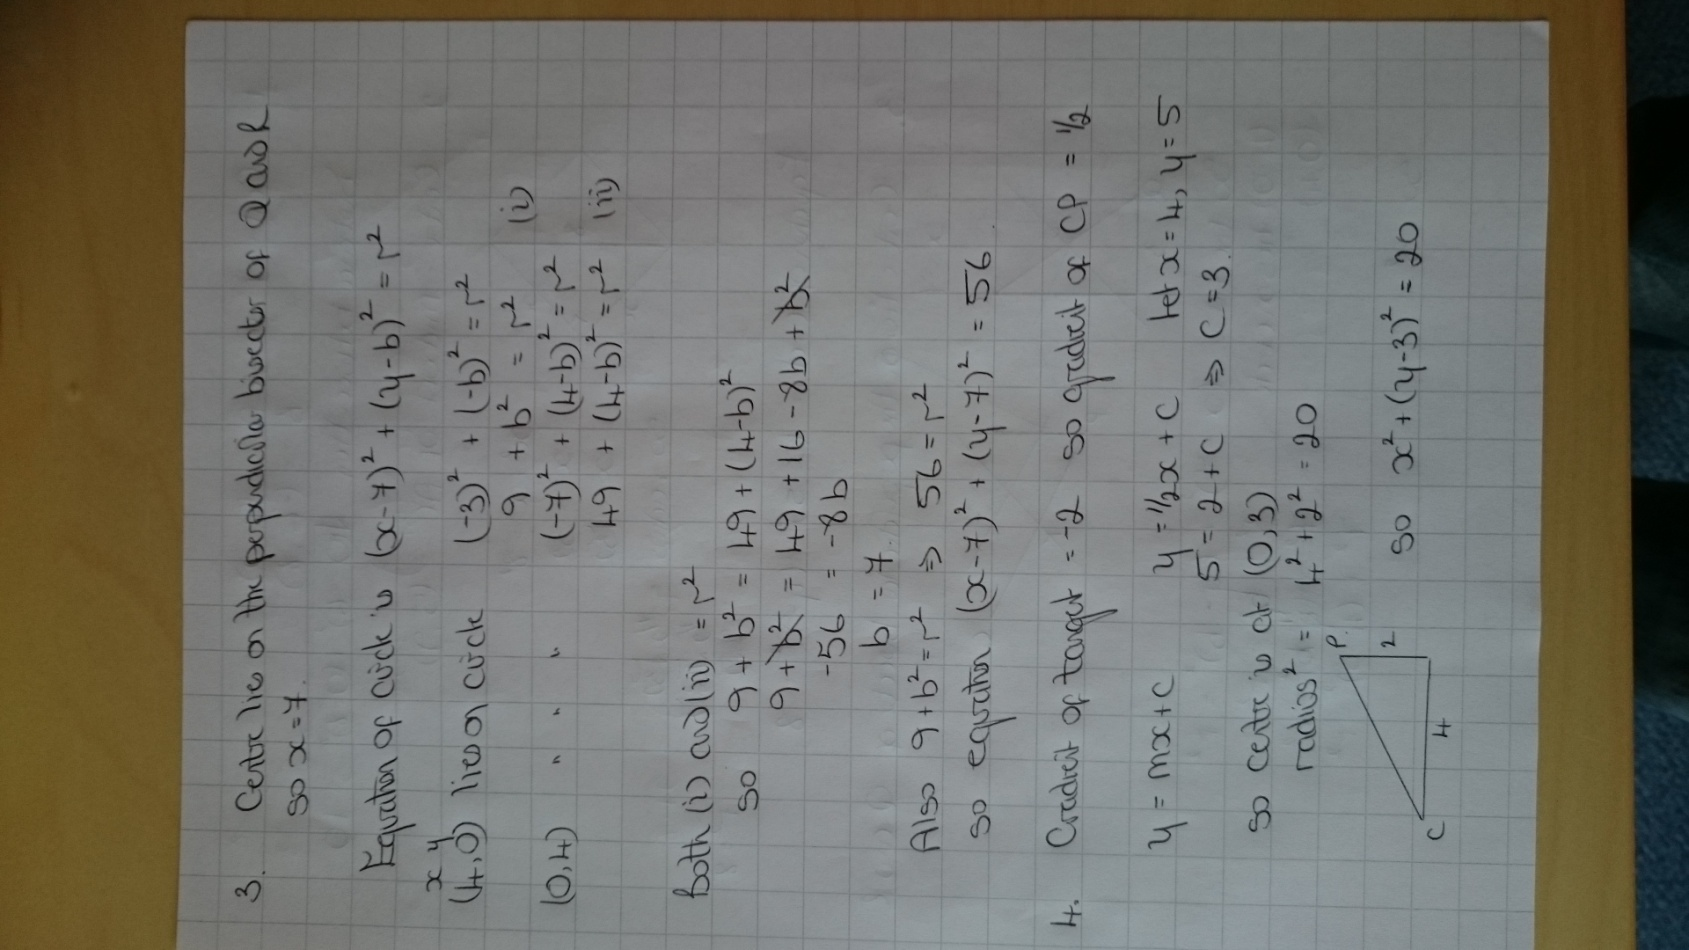 3. Centre lies on the perpendicular bisector of Q and R
so x = 7.
Equation of circle is (x-7)² + (y-b)² = r²
x y
(4,0) lies on circle (-3)² + (-b)² = r²
9 + b² = r² (i)
(0,4) " " " (-7)² + (4-b)² = r²
49 + (4-b)² = r² (ii)
Both (i) and (ii) = r²
so 9 + b² = 49 + (4-b)²
9 + b² = 49 + 16 - 8b + b²
-56 = -8b
b = 7.
Also 9 + b² = r² ⇒ 56 = r²
so equation (x-7)² + (y-7)² = 56.
4. Gradient of tangent = -2 so gradient of CP = 1/2
y = mx + c y = 1/2x + c let x = 4, y = 5
5 = 2 + c ⇒ c = 3.
so centre is at (0,3)
radius² = 4² + 2² = 20
P.
2
4
C
so x² + (y-3)² = 20